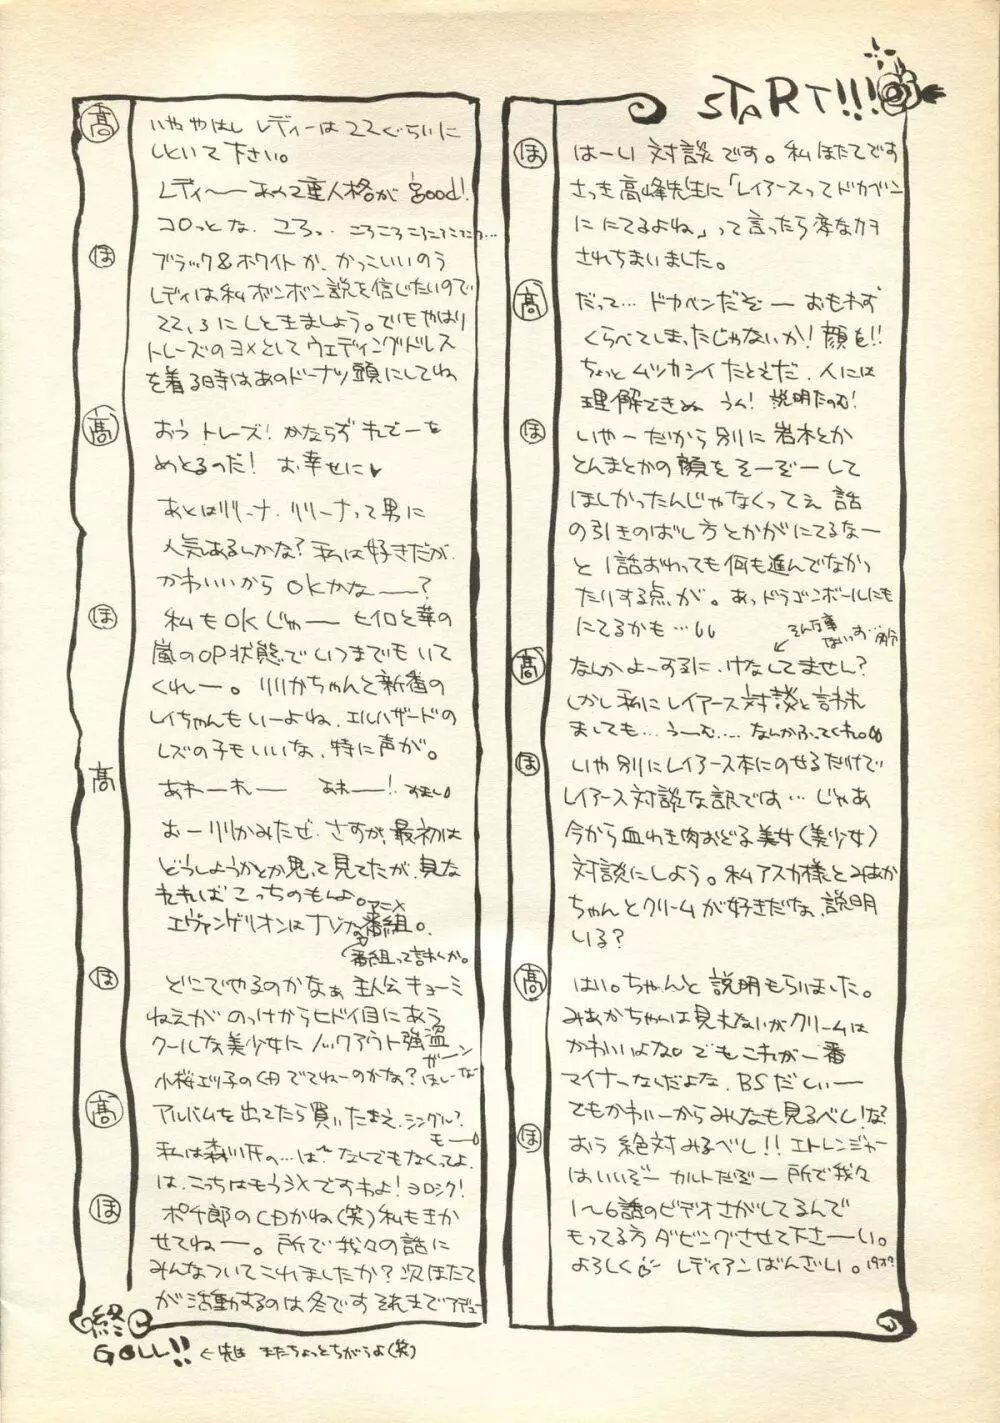 START!!!
ほ はーい 対談です。私ほたてです
さっき高峰先生に「レイアースってドカベン
に にてるよね」って言ったら変なカオ
されちまいました。
高 だって… ドカベンだぞー おもわず
くらべてしまったじゃないか!顔を!!
ちょっと ムツカシイ たとえだ.人には
理解できぬ うむ! 説明たのむ!
ほ いやーだから別に 岩木とか
とんまとかの顔を そーぞーして
ほしかったんじゃなくってぇ 話
の引きのばし方とかがにてるなー
と 1話おわっても何も進んでなかっ
たりする点が。あっドラゴンボールにも
にてるかも…
そんな事ないっす…
高 なんかよーするに.けなしてません?
しかし私にレイアース対談と言われ
ましても… うーむ…. なんかふってくれ。
ほ いや別にレイアース本にのせるだけで
レイアース対談な訳では… じゃあ
今から血わき肉おどる美女(美少女)
対談にしよう。私アスカ様とみはか
ちゃんとクリームが好きだな.説明
いる?
高 はい。ちゃんと説明もらいました。
みあかちゃんは見えないがクリームは
かわいいよな。でもこれが一番
マイナーなんだよな.BSだしぃー
でもかわいーからみんなも見るべし!な?
ほ おう 絶対みるべし!! エトレンジャー
はいいぞー カルトだぞー 所で我々
1〜6話のビデオさがしてるんで
もってる方 ダビングさせて下さーい。
よろしく レディアンばんざい。
高 いややはし レディーは22ぐらいに
しといて下さい。
レディ〜 あの2重人格が good!
コロっとな.コろっ. ころころころころころ…
ほ ブラック&ホワイトか.かっこいいのう
レディは私ボンボン説を信じたいので
22,3にしときましょう。でもやはり
トレーズのヨメとしてウェディングドレス
を着る時はあのドーナツ頭にしてね
高 おう トレーズ! かならず れでーを
めとるのだ! お幸せに♥
あとはリリーナ.リリーナって男に
人気あるんかな?私は好きだが.
かわいいから OKかな──?
ほ 私もOKじゃー ヒイロと華の
嵐のOP状態でいつまでもいて
くれー。リリかちゃんと新番の
レイちゃんもいーよね.エルハザードの
レズの子もいいな.特に声が。
高 あれーれー あれー!
おーリリかみたぜ.さすが.最初は
どうしようかとか思って見てたが.見な
れればこっちのもんよ。
エヴァンゲリオンは アニメな番組。
(番組って言わんか。
ほ どこでやるのかなぁ 主人公キョーミ
ねえが のっけからヒドイ目にあう
クールな美少女に ノックアウト強盗
ガーン
小桜エツ子のCDでてねーのかな?ほしーな
高 アルバムを出てたら買いたまえ.シングル?
モー
私は森川氏の…ば なんでもなくってよ.
は.こっちはもうシメですわよ!ヨロシク!
ほ ポチ郎のCDかね(笑)私もきか
せてねー。所で我々の話に
みんなついてこれましたか?次ほたて
が活動するのは冬です それまでアデュー
終
GOLL!! く先は またちょっとちがうよ(笑)